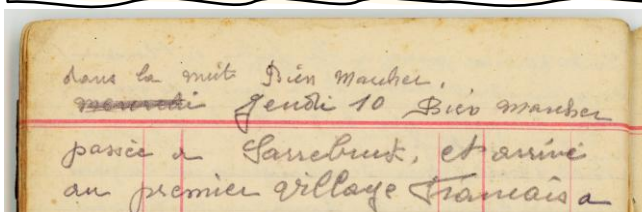 dans la nuit Bien marcher.
mercredi Jeudi 10 Bien marcher
passée a Sarrebruk, et arrivé
au premier village Francais a